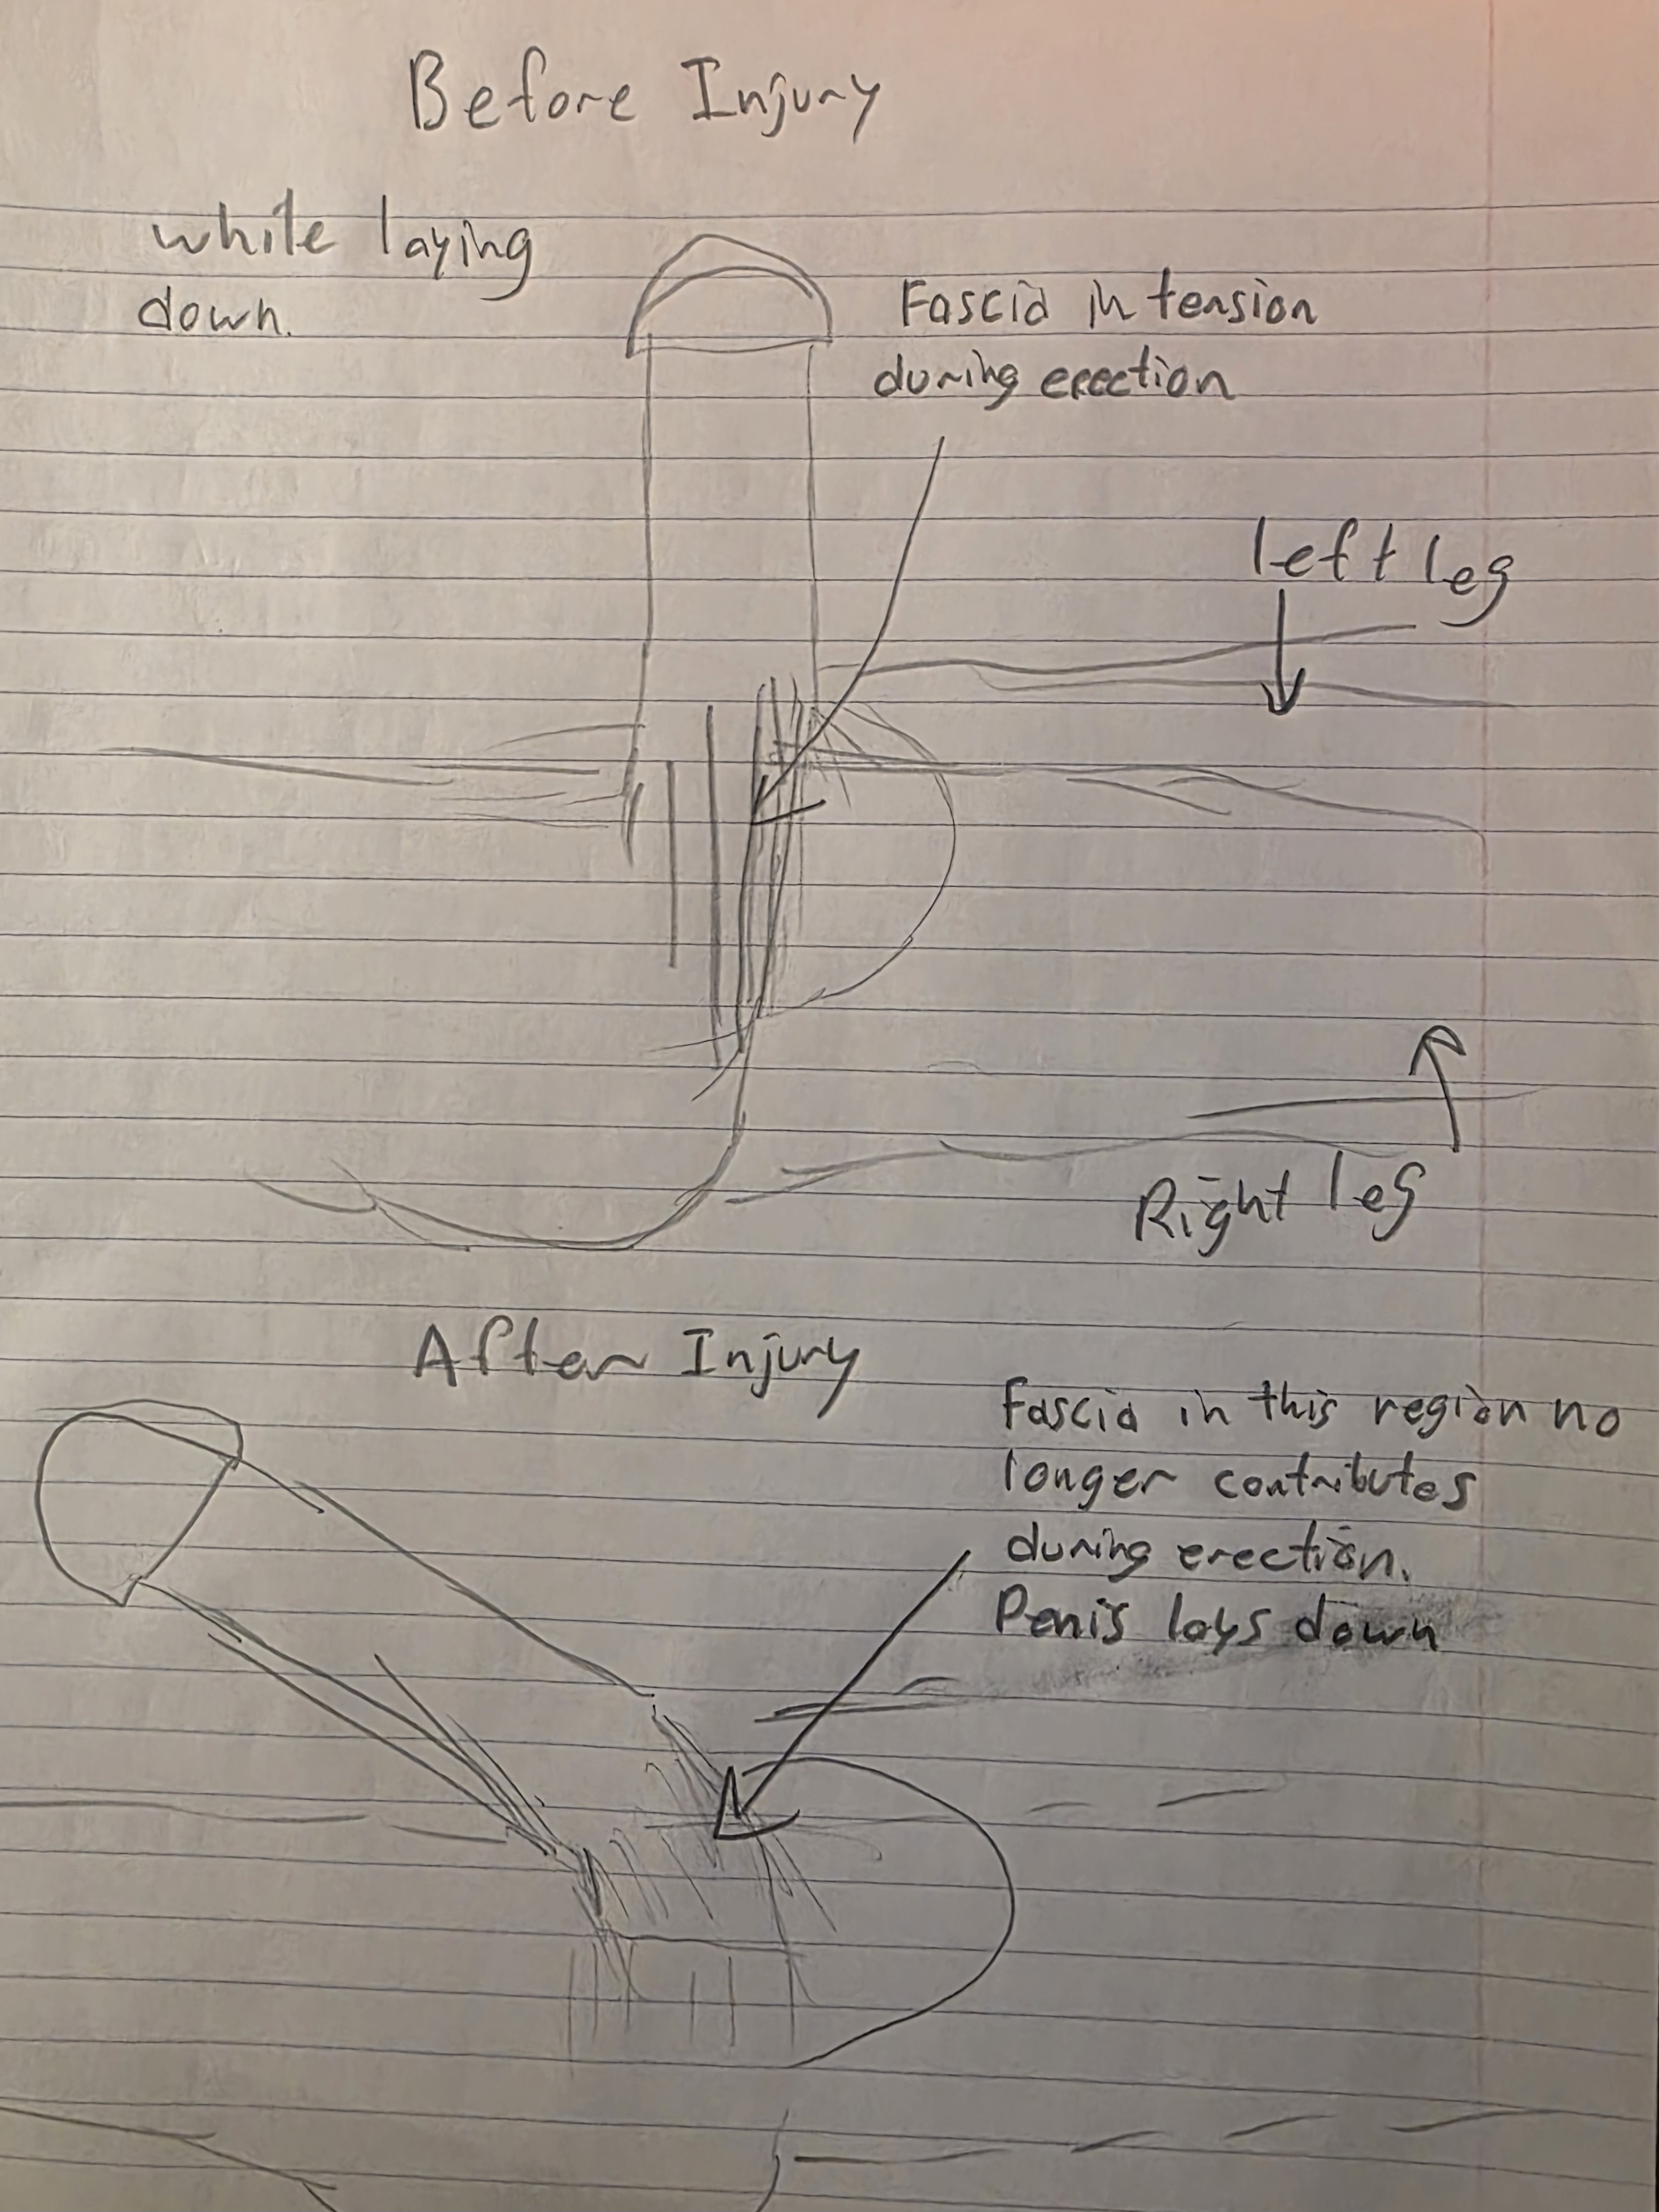 Before Injury
while laying
down.
Fascia in tension
during erection
left leg
Right leg
After Injury
Fascia in this region no
longer contributes
during erection.
Penis lays down